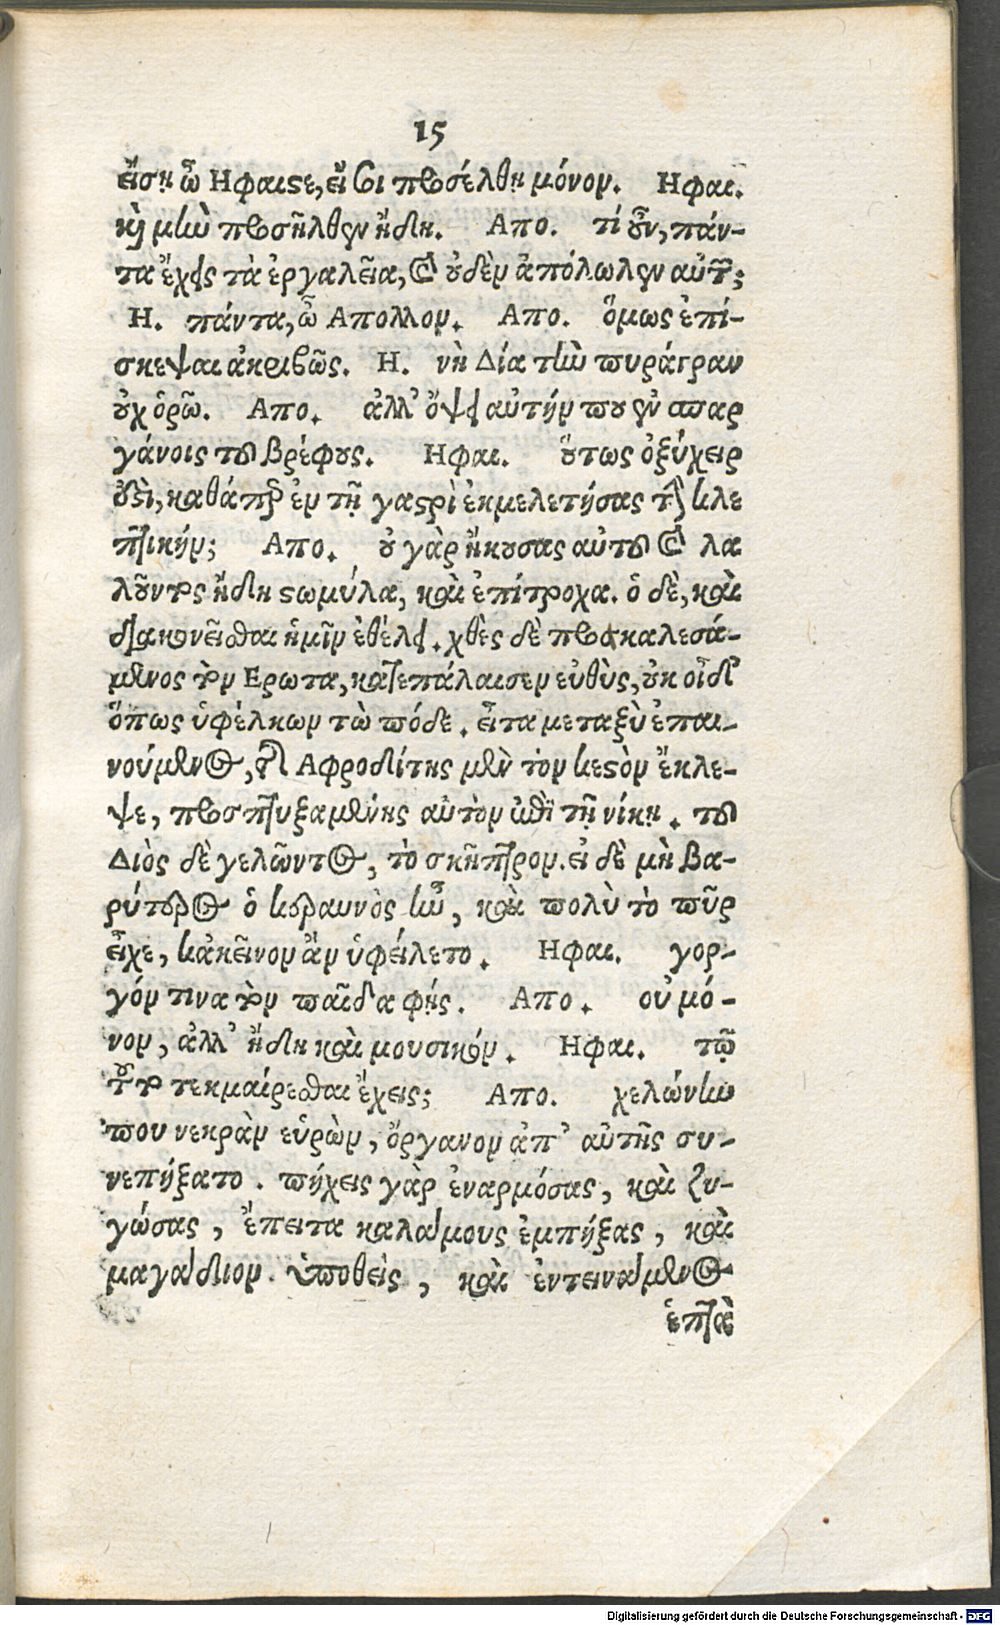 15
εἴσῃ ὦ Ηφαιστε, εἴ σοι προσέλθῃ μόνον. Ηφαι.
καὶ μὴν προσῆλθεν ἤδη. Απο. τί οὖν, πάν-
τα ἔχεις τὰ ἐργαλεῖα, καὶ οὐδὲν ἀπόλωλεν αὐτῶν;
Η. πάντα, ὦ Απολλον. Απο. ὅμως ἐπί-
σκεψαι ἀκριβῶς. Η. νὴ Δία τὴν πυράγραν
οὐχ ὁρῶ. Απο. ἀλλ' ὄψει αὐτήν που ἐν σπαρ
γάνοις τοῦ βρέφους. Ηφαι. οὕτως ὀξύχειρ
ἐστὶ, καθάπερ ἐν τῇ γαστρὶ ἐκμελετήσας τὴν κλε
πτικήν; Απο. οὐ γὰρ ἤκουσας αὐτοῦ καὶ λα
λοῦντος ἤδη στωμύλα, καὶ ἐπίτροχα. ὁ δὲ, καὶ
διακονεῖσθαι ἡμῖν ἐθέλει. χθὲς δὲ προσκαλεσά-
μενος τὸν Ερωτα, κατεπάλαισεν εὐθὺς, οὐκ οἶδ'
ὅπως ὑφέλκων τὼ πόδε. εἶτα μεταξὺ ἐπαι-
νούμενος, τῆς Αφροδίτης μὲν τὸν κεστὸν ἔκλε-
ψε, προσπτυξαμένης αὐτὸν ἐπὶ τῇ νίκῃ. τοῦ
Διὸς δὲ γελῶντος, τὸ σκῆπτρον. εἰ δὲ μὴ βα-
ρύτερος ὁ κεραυνὸς ἦν, καὶ πολὺ τὸ πῦρ
εἶχε, κἀκεῖνον ἂν ὑφείλετο. Ηφαι. γορ-
γόν τινα τὸν παῖδα φῄς. Απο. οὐ μό-
νον, ἀλλ' ἤδη καὶ μουσικόν. Ηφαι. τῷ
τοῦτο τεκμαίρεσθαι ἔχεις; Απο. χελώνην
που νεκρὰν εὑρὼν, ὄργανον ἀπ' αὐτῆς συ-
νεπήξατο. πήχεις γὰρ ἐναρμόσας, καὶ ζυ-
γώσας, ἔπειτα καλάμους ἐμπήξας, καὶ
μαγάδιον ὑποθεὶς, καὶ ἐντεινάμενος
ἑπτὰ
Digitalisierung gefördert durch die Deutsche Forschungsgemeinschaft - DFG